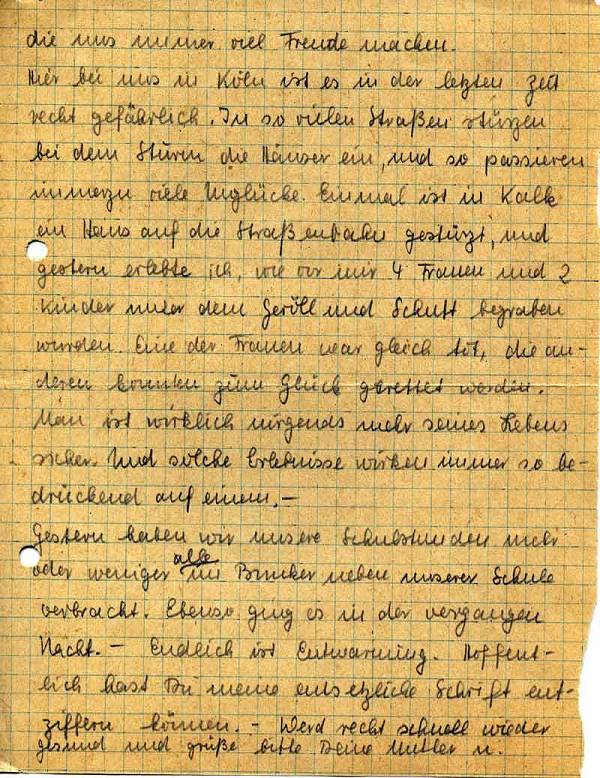 die uns immer viel Freude machen.
Hier bei uns in Köln ist es in der letzten Zeit
recht gefährlich. In so vielen Straßen stürzen
bei dem Sturm die Häuser ein, und so passieren
immerzu viele Unglücke. Einmal ist in Kalk
ein Haus auf die Straßenbahn gestürzt, und
gestern erlebte ich, wie vor mir 4 Frauen und 2
Kinder unter dem Geröll und Schutt begraben
wurden. Eine der Frauen war gleich tot, die an-
deren konnten zum Glück gerettet werden.
Man ist wirklich nirgends mehr seines Lebens
sicher. Und solche Erlebnisse wirken immer so be-
drückend auf einem. -
Gestern haben wir unsere Schulstunden mehr
oder weniger alle im Bunker neben unserer Schule
verbracht. Ebenso ging es in der vergangen
Nacht. - Endlich ist Entwarnung. Hoffent-
lich hast Du meine entsetzliche Schrift ent-
ziffern können. - Werd recht schnell wieder
gesund und grüße bitte Deine Mutter u.